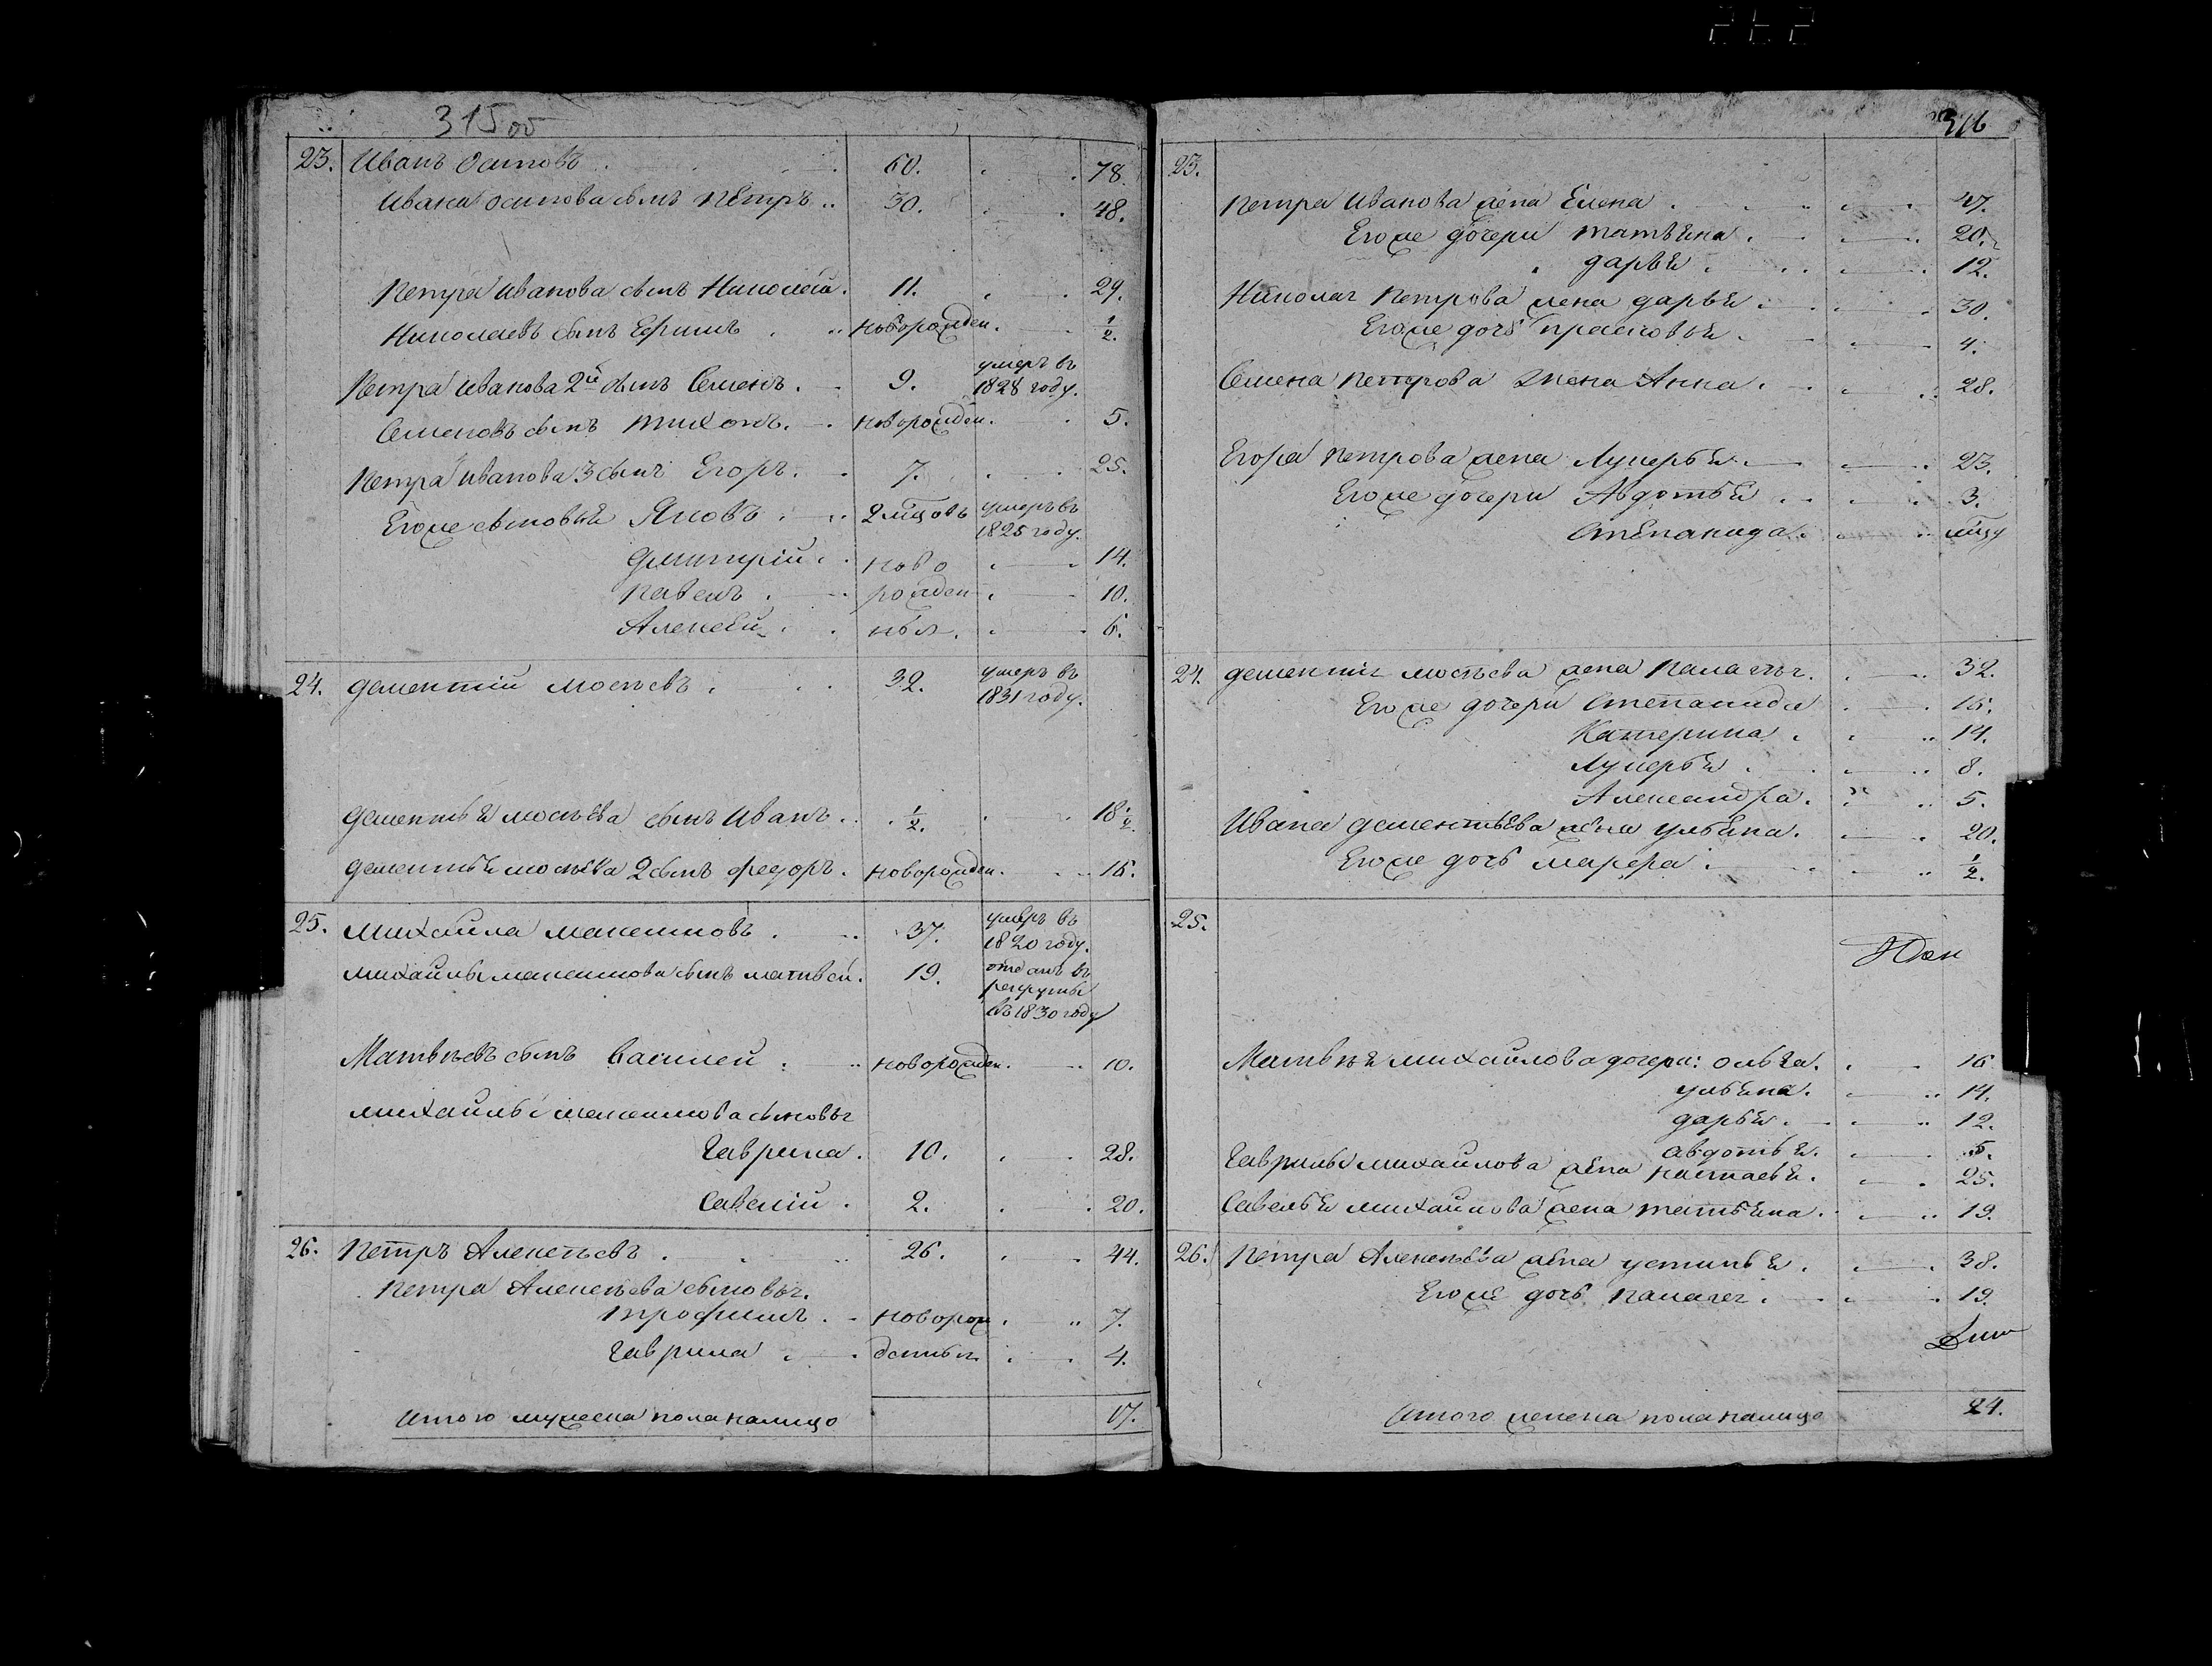 315 об
23. Иванъ Осиповъ . 60. 78.
Ивана Осипова сынъ Петръ .. 30. 48.
Петра Иванова сынъ Николай. 11. 29.
Николаевъ сынъ Ефимъ новорожден. 1/2.
Петра Иванова 2й сынъ Семенъ. 9. умеръ въ 1828 году.
Семеновъ сынъ Тихонъ. новорожден. 5.
Петра Иванова 3 сынъ Егоръ. 7. 25.
Егоже сыновья Яковъ 2 мцовъ умеръ въ 1825 году.
Дмитрій ново 14.
Павелъ рожден 10.
Алексей ныя. 6.
24. Дементій Мосѣевъ 32. умеръ въ 1831 году.
Дементья Мосѣева сынъ Иванъ. 1/2. 18 1/2.
Дементья Мосѣева 2 сынъ Федоръ. новорожден. 15.
25. Михаила Максимовъ 37. умеръ въ 1820 году.
Михайлы Максимова сынъ Матвей. 19. отданъ въ рекруты въ 1830 году
Матвѣевъ сынъ Василей новорожден. 10.
Михайлы Максимова сыновья
Гаврила. 10. 28.
Савелій 2. 20.
26. Петръ Алексѣевъ 26. 44.
Петра Алексѣева сыновья.
Трофимъ новорож 7.
Гаврила денныя 4.
Итого мужеска пола налицо 17.
316
23.
Петра Иванова жена Елена 47.
Егоже дочери Татьяна 20.
Дарья 12.
Николая Петрова жена Дарья 30.
Егоже дочь Прасковья 4.
Семена Петрова жена Анна. 28.
Егора Петрова жена Лукерья 23.
Егоже дочери Авдотья 3.
Степанида мцу
24. Дементія Мосѣева жена Палагея. 32.
Егоже дочери Степанида 15.
Катерина 14.
Лукерья 8.
Александра. 5.
Ивана Дементьева жена Ульяна. 20.
Егоже дочь Марфа 1/2.
25.
Матвѣя Михайлова дочери: Ольга. 16
Ульяна. 14.
Дарья. 12.
Авдотья. 5.
Гаврилы Михайлова жена Настасья. 25.
Савелья Михайлова жена Татьяна. 19.
26. Петра Алексѣева жена Устинья. 38.
Егоже дочь Палагея 19.
Итого женска пола налицо 24.